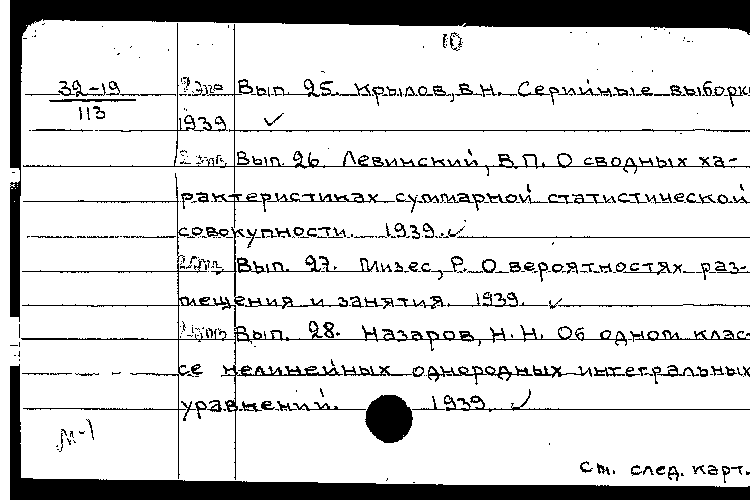 10
32-19 2 экз Вып. 25. Крылов, В.Н. Серийные выборки
113
1939 ✓
2 экз Вып. 26. Левинский, В.П. О сводных ха-
рактеристиках суммарной статистической
совокупности. 1939. ✓
2 экз Вып. 27. Мизес, Р. О вероятностях раз-
мещения и занятия. 1939. ✓
2 экз Вып. 28. Назаров, Н.Н. Об одном клас-
се нелинейных однородных интегральных
уравнений. 1939. ✓
М-1
См. след. карт.